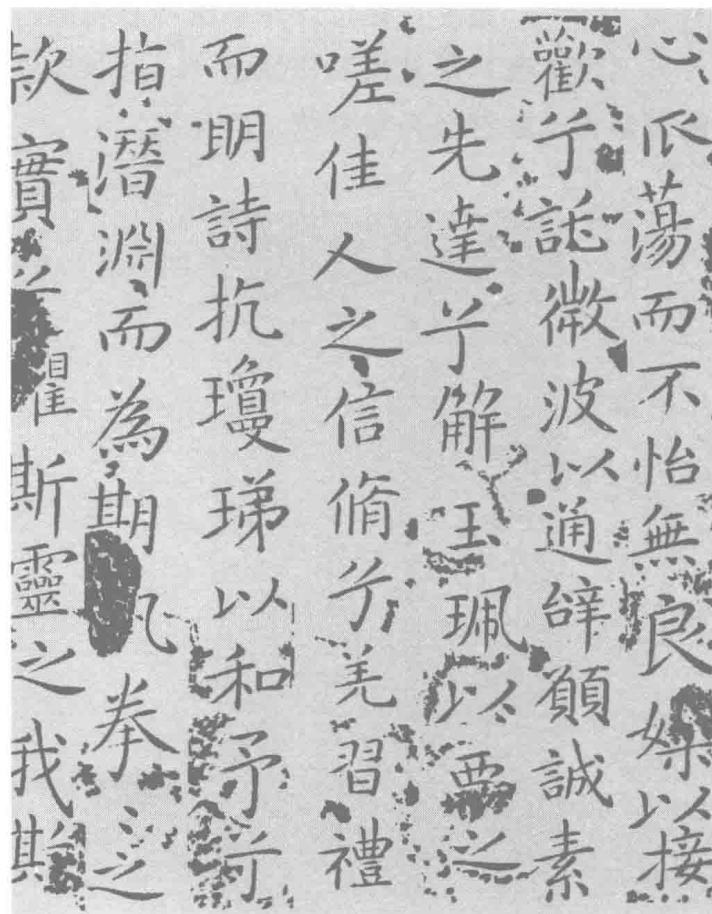 心蕩而不怡無良媒以接
歡兮託微波以通辭願誠素
之先達兮解玉珮以要之
嗟佳人之信脩兮羌習禮
而明詩抗瓊珶以和予兮
指潛淵而為期拳々之
款實兮懼斯靈之我欺